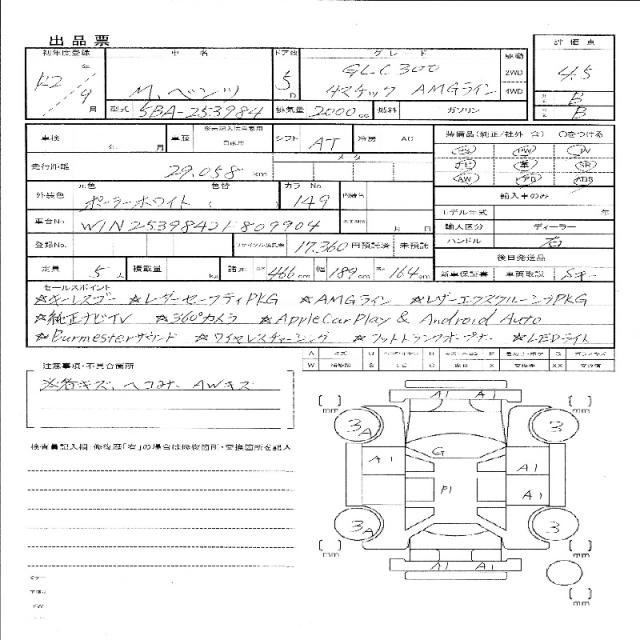 出品票
初年度登録 車名 ドア数 グレード 駆動 評価点
年 R2 M.ベンツ 5 D GLC300 2WD 4.5
9 月 4マチック AMGライン 4WD B
型式 5BA-253984 排気量 2000 cc 燃料 ガソリン B
車検 年 月 車歴 自家用 シフト AT 冷房 AC 装備品(純正/社外 含) ○をつける
走行距離 29,058 km PW 革 SR
AW AB
外装色 元色 色替 カラーNo. 輸入車のみ
ポーラーホワイト ( ) 149 モデル年式 年
車台No. W1N2539842F809904 月 日 輸入区分 ディーラー
登録No. リサイクル預託金 17,360 円預託済 未預託 ハンドル 右
後日発送品
定員 5 人 積載量 kg 諸元 466 cm 幅 189 cm 164 cm 新車保証書 車両取説 Sキー
セールスポイント
☆キーレスゴー ☆レーダーセーフティPKG ☆AMGライン ☆レザーエクスクルーシブPKG
☆純正ナビTV ☆360°カメラ ☆Apple CarPlay & Android Auto
☆Burmesterサウンド ☆ワイヤレスチャージング ☆フットトランクオープナー ☆LEDライト
注意事項・不具合箇所
※各キズ、ヘコミ、AWキズ
検査員記入欄 修復歴「有」の場合は修復箇所・交換箇所を記入
A1 A1
3 A 3
G
A1 A1
P1 A1
3 A 3
A1 A1
mm mm
mm mm
mm